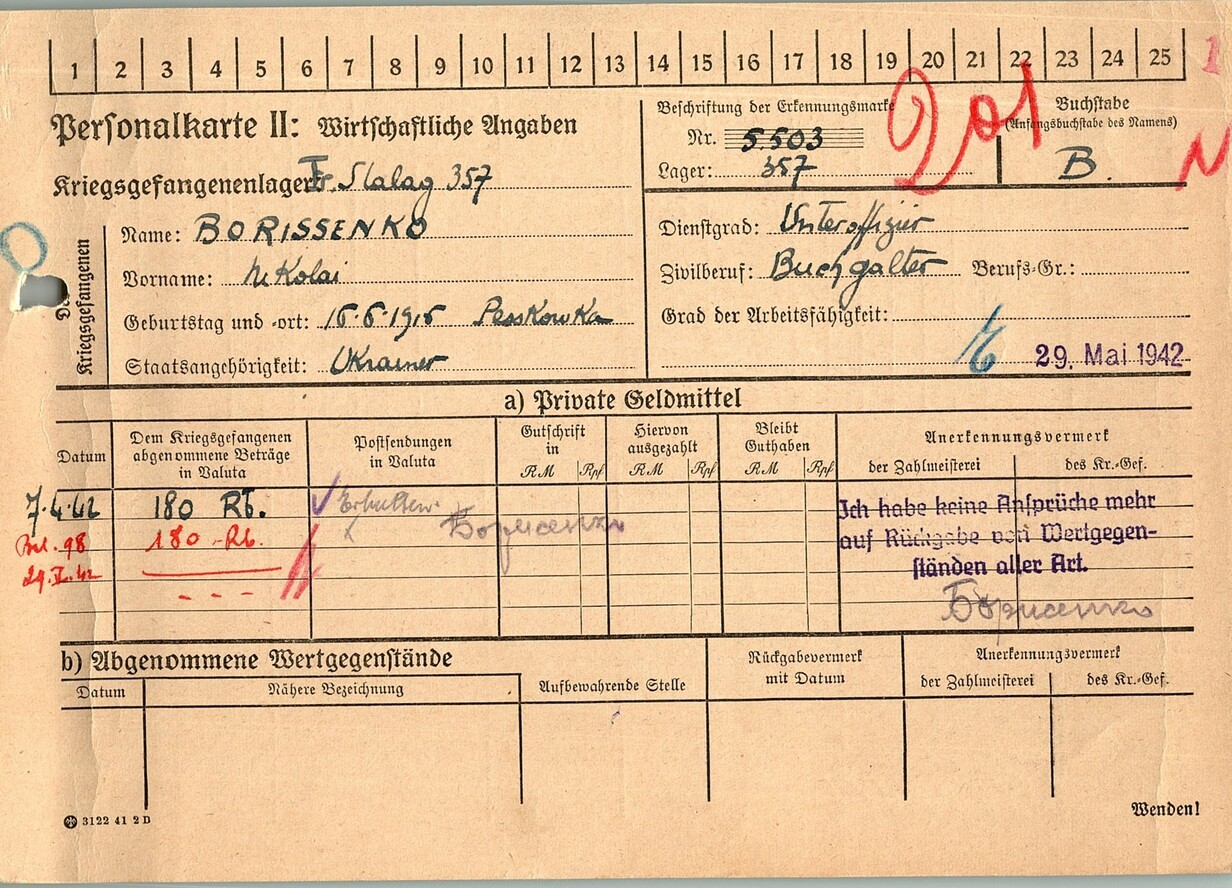 1 2 3 4 5 6 7 8 9 10 11 12 13 14 15 16 17 18 19 20 21 22 23 24 25
1
Personalkarte II: Wirtschaftliche Angaben
Kriegsgefangenenlager: Fr. Stalag 357
Beschriftung der Erkennungsmarke
Nr. 5503
Lager: 357
201
Buchstabe
(Anfangsbuchstabe des Namens)
B.
N
Des Kriegsgefangenen
Name: BORISSENKO
Vorname: Nikolai
Geburtstag und -ort: 16.6.1916 Pesskowka
Staatsangehörigkeit: Ukrainer
Dienstgrad: Unteroffizier
Zivilberuf: Buchgalter Berufs-Gr.:
Grad der Arbeitsfähigkeit:
29. Mai 1942
a) Private Geldmittel
Datum
Dem Kriegsgefangenen abgenommene Beträge in Valuta
Postsendungen in Valuta
Gutschrift in
RM Rpf
Hiervon ausgezahlt
RM Rpf
Bleibt Guthaben
RM Rpf
Anerkennungsvermerk
der Zahlmeisterei des Kr.-Gef.
7.4.42 180 Rb. Erhalten. Борисенко
180 Rb.
Ich habe keine Ansprüche mehr
auf Rückgabe von Wertgegen-
ständen aller Art.
Борисенко
b) Abgenommene Wertgegenstände
Datum Nähere Bezeichnung
Aufbewahrende Stelle
Rückgabevermerk mit Datum
Anerkennungsvermerk
der Zahlmeisterei des Kr.-Gef.
3122 41 2 D
Wenden!